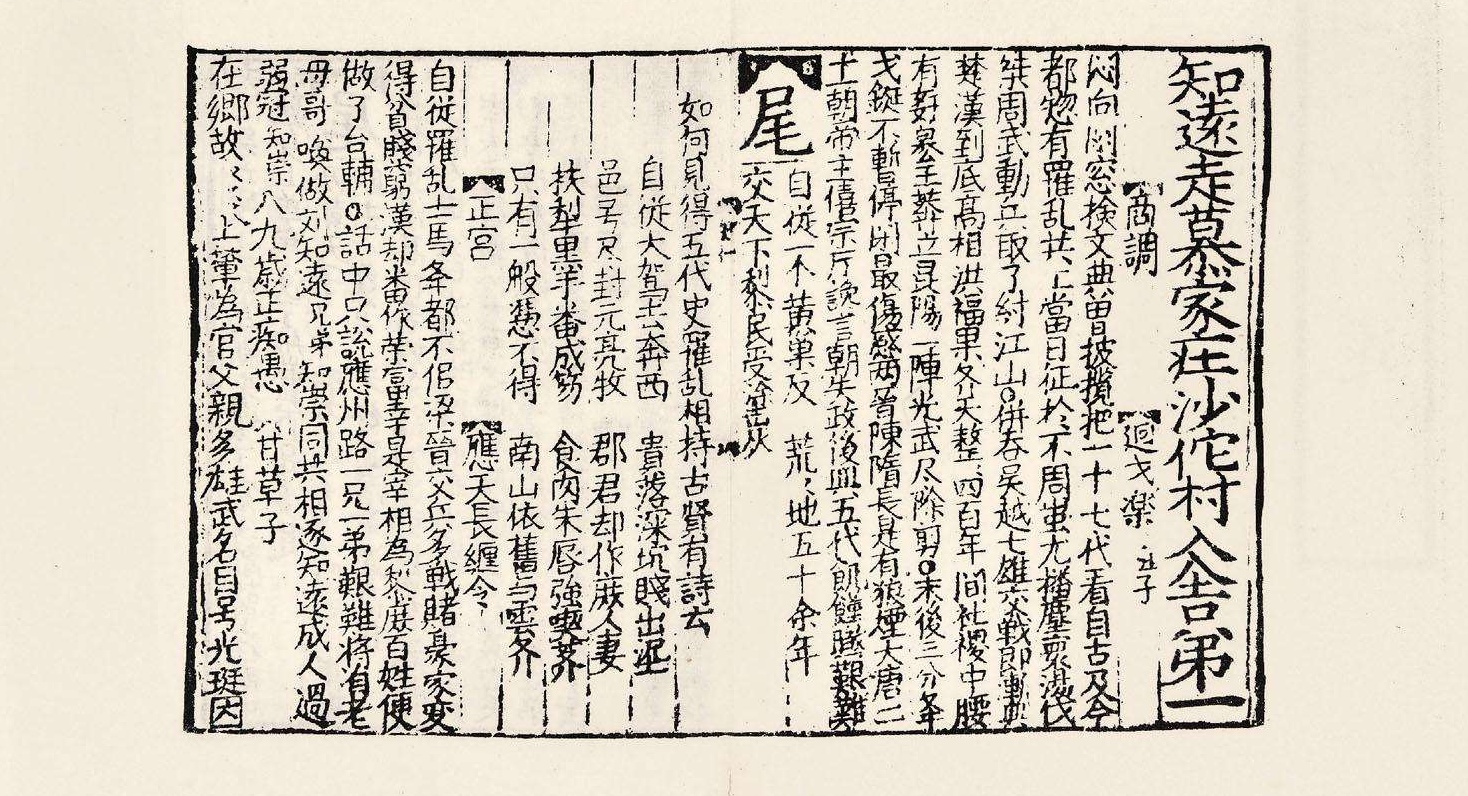 知遠走慕家庄沙佗村入舍第一
商調 迴戈樂
悶向閑窓檢文典曾披攬把一十七代看自古及今
都惣有罹乱共工當日征於不周蚩尤播塵寰湯伐
桀周武動兵取了紂江山○併吞吳越七雄交戰即漸興
楚漢到底高相洪福果齐天整四百年間社禝中腰
有奸臣王莽立昆陽一陣光武尽除剪○末後三分举
戈鋋不暫停閑最傷感兩晋陳隋長是有狼煙大唐二
十一朝帝主僖宗听讒言朝失政後興五代飢饉艱難
尾 自從一个黄巢反 荒〻地五十余年
交天下黎民受塗炭
如何見得五代史罹乱相持古賢有詩云
自從大駕去奔西 貴落深坑賤出泥
邑号尽封元亮牧 郡君却作庶人妻
扶犁黑手番成笏 食肉朱唇強嚥虀
只有一般憑不得 南山依舊与雲齐
正宫 應天長纏令
自從罹乱士馬举都不侶梁晉交兵多戰賭豪家变
得貧賤窮漢却番作榮富幸是宰相為黎庶百姓便
做了台輔○話中只説應州路一兄一弟艱難將自老
母哥〻喚做刘知遠兄弟知崇同共相逐知遠成人過
弱冠知崇八九歲正痴愚 甘草子
在鄉故〻〻上輩為官父親多雄武名目号光珽因